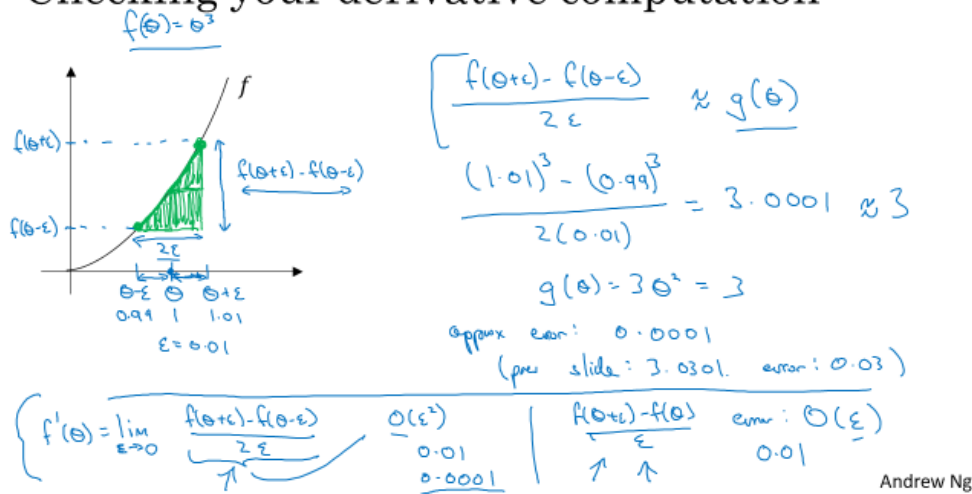 Checking your derivative computation
f(θ) = θ³
f
f(θ+ε)
f(θ-ε)
f(θ+ε) - f(θ-ε)
2ε
θ-ε θ θ+ε
0.99 1 1.01
ε = 0.01
[ (f(θ+ε) - f(θ-ε)) / 2ε ≈ g(θ)
((1.01)³ - (0.99)³) / 2(0.01) = 3.0001 ≈ 3
g(θ) = 3θ² = 3
approx error: 0.0001
(prev slide: 3.0301. error: 0.03)
{ f'(θ) = lim ε→0 (f(θ+ε) - f(θ-ε)) / 2ε O(ε²)
0.01
0.0001
(f(θ+ε) - f(θ)) / ε error: O(ε)
0.01
Andrew Ng